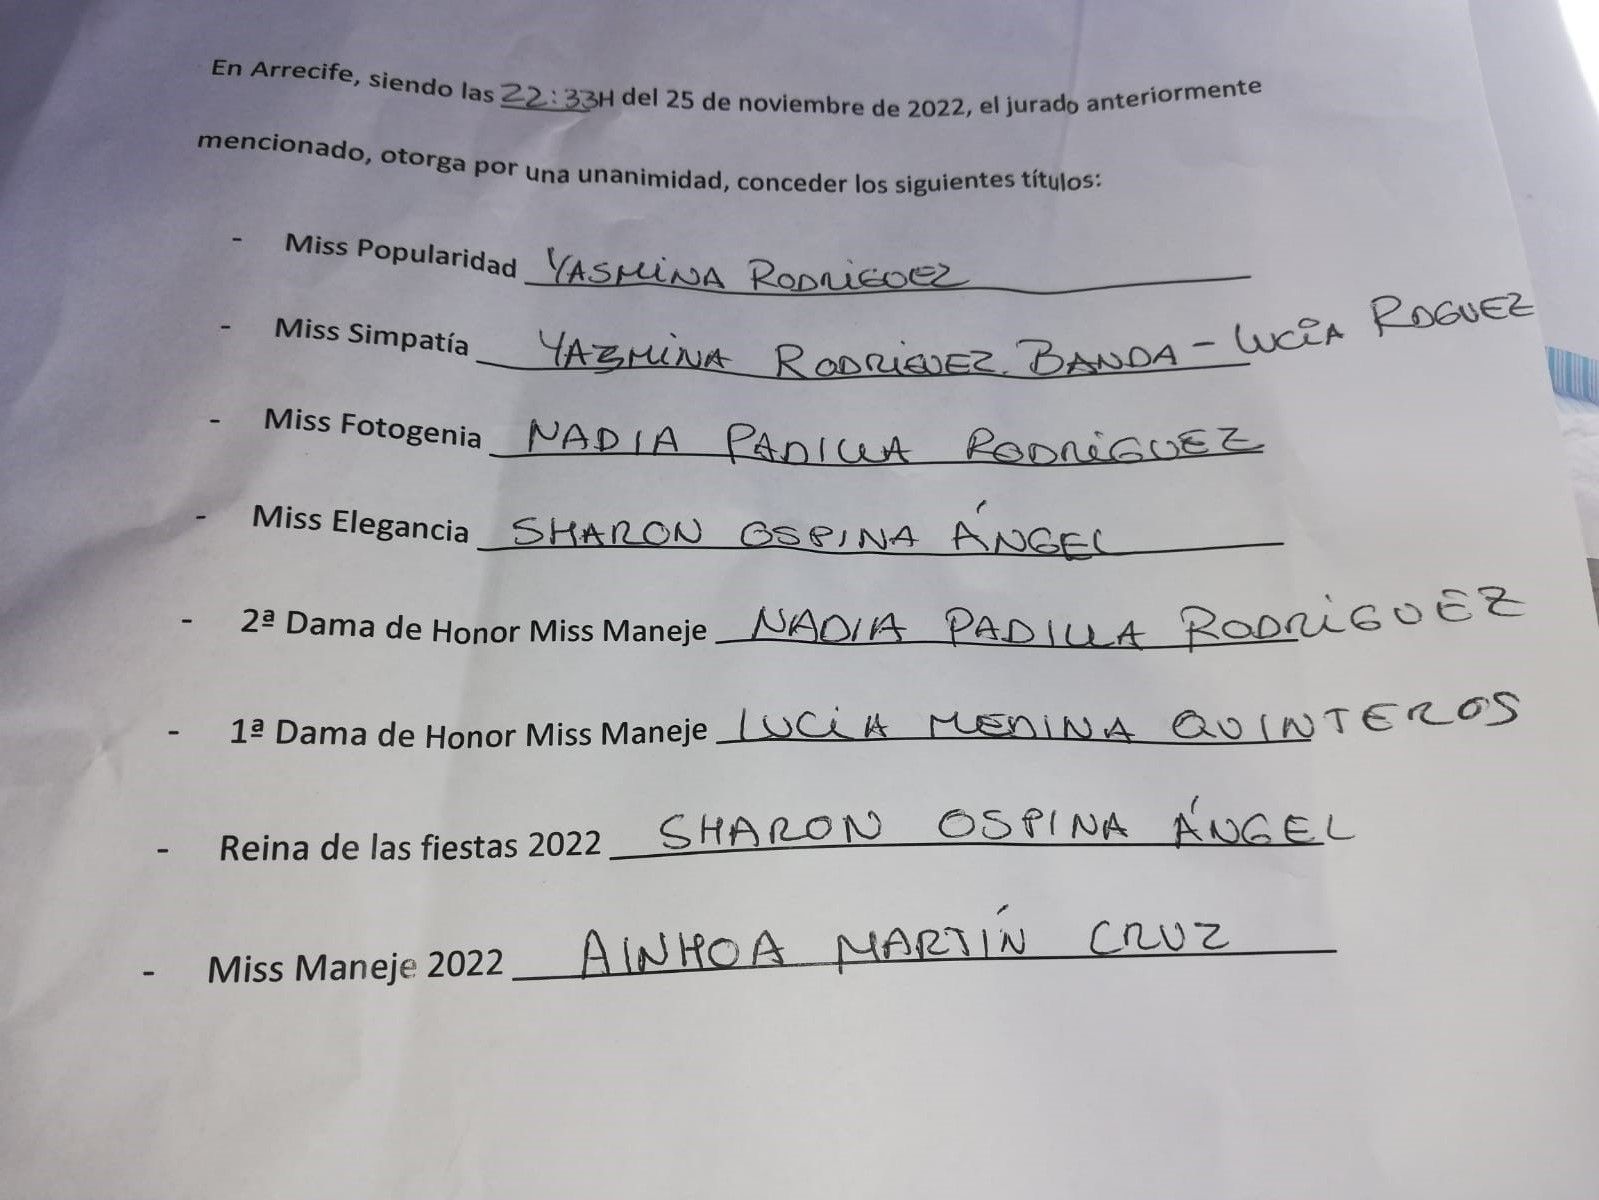 En Arrecife, siendo las 22:33H del 25 de noviembre de 2022, el jurado anteriormente
mencionado, otorga por una unanimidad, conceder los siguientes títulos:
- Miss Popularidad YASMINA RODRIGUEZ
- Miss Simpatía YAZMINA RODRIGUEZ BANDA - LUCÍA ROGUEZ
- Miss Fotogenia NADIA PADILLA RODRIGUEZ
- Miss Elegancia SHARON OSPINA ÁNGEL
- 2ª Dama de Honor Miss Maneje NADIA PADILLA RODRIGUEZ
- 1ª Dama de Honor Miss Maneje LUCIA MEDINA QUINTEROS
- Reina de las fiestas 2022 SHARON OSPINA ÁNGEL
- Miss Maneje 2022 AINHOA MARTÍN CRUZ